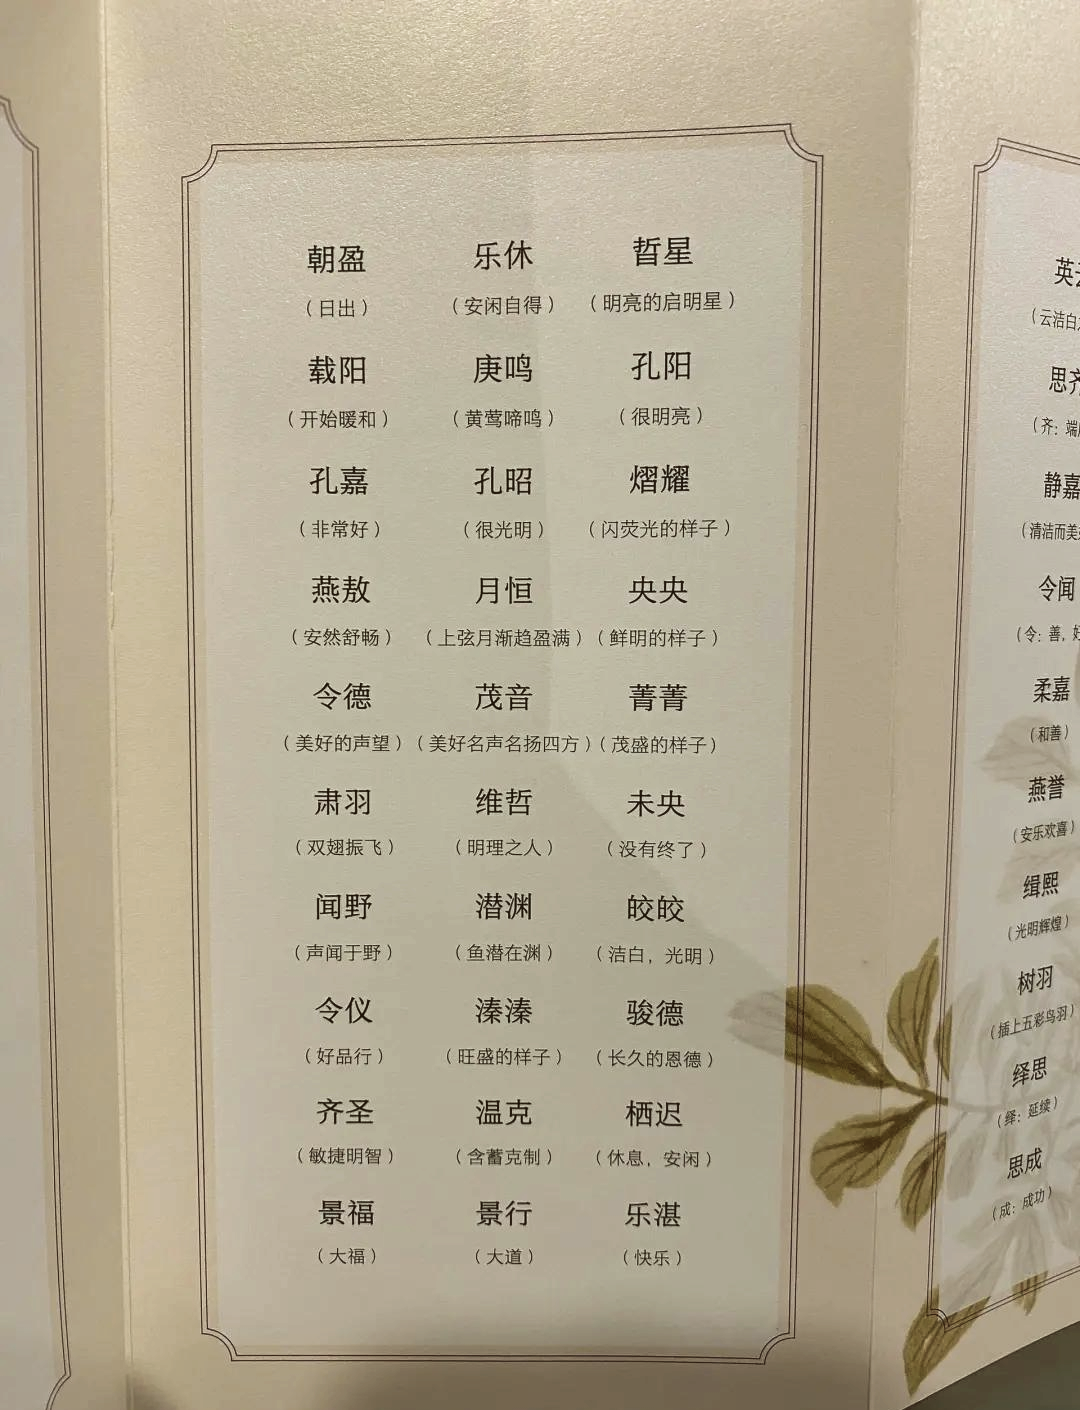 朝盈 乐休 哲星
（日出） （安闲自得） （明亮的启明星）
载阳 庚鸣 孔阳
（开始暖和） （黄莺啼鸣） （很明亮）
孔嘉 孔昭 熠耀
（非常好） （很光明） （闪荧光的样子）
燕敖 月恒 央央
（安然舒畅） （上弦月渐趋盈满） （鲜明的样子）
令德 茂音 菁菁
（美好的声望） （美好名声名扬四方） （茂盛的样子）
肃羽 维哲 未央
（双翅振飞） （明理之人） （没有终了）
闻野 潜渊 皎皎
（声闻于野） （鱼潜在渊） （洁白，光明）
令仪 溱溱 骏德
（好品行） （旺盛的样子） （长久的恩德）
齐圣 温克 栖迟
（敏捷明智） （含蓄克制） （休息，安闲）
景福 景行 乐湛
（大福） （大道） （快乐）
英
（云洁白
思齐
（齐：端
静嘉
（清洁而美
令闻
（令：善，
柔嘉
（和善）
燕誉
（安乐欢喜）
缉熙
（光明辉煌）
树羽
（插上五彩鸟羽）
绎思
（绎：延续）
思成
（成：成功）